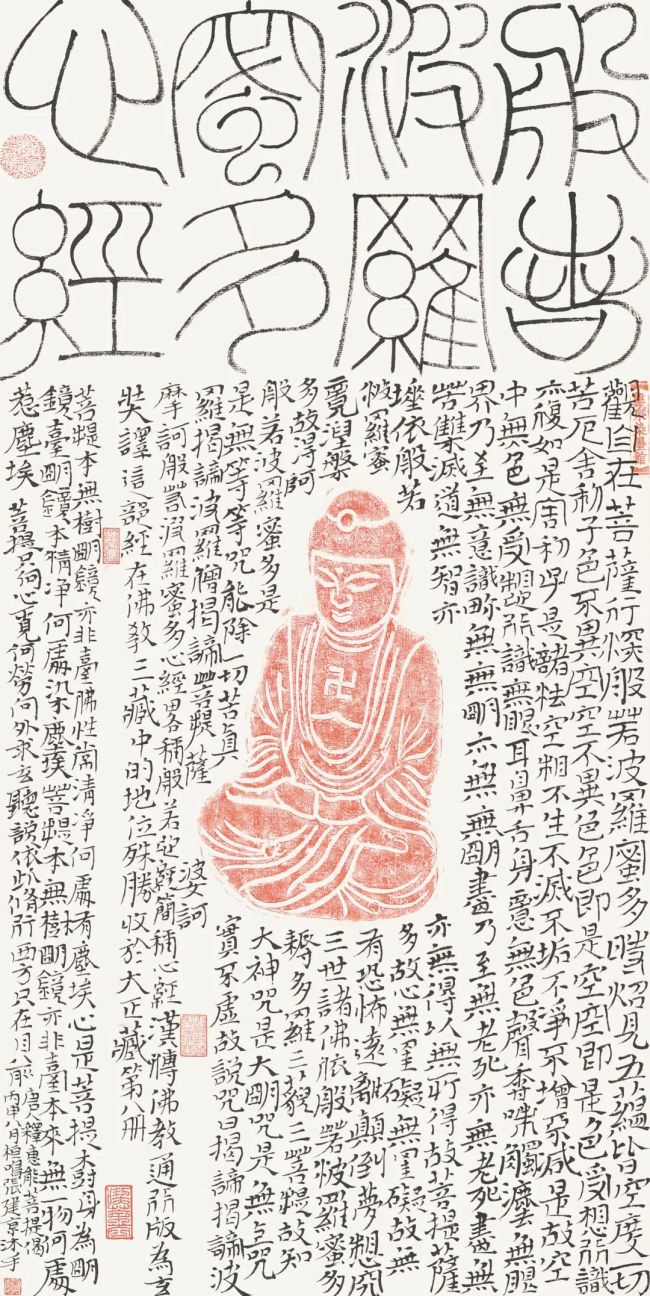 般若
波羅
蜜多
心經
觀自在菩薩行深般若波羅蜜多時照見五蘊皆空度一切
苦厄舍利子色不異空空不異色色即是空空即是色受想行識
亦復如是舍利子是諸法空相不生不滅不垢不淨不增不減是故空
中無色無受想行識無眼耳鼻舌身意無色聲香味觸法無眼
界乃至無意識界無無明亦無無明盡乃至無老死亦無老死盡無
苦集滅道無智亦
亦無得以無所得故菩提薩
埵依般若
波羅蜜
多故心無罣礙無罣礙故無
有恐怖遠離顛倒夢想究
竟涅槃
三世諸佛依般若波羅蜜多
多故得阿
耨多羅三藐三菩提故知
般若波羅蜜多是
大神咒是大明咒是無上咒
是無等等咒能除一切苦真
實不虛故說咒曰揭諦揭諦波
羅揭諦波羅僧揭諦菩提薩
婆訶
摩訶般若波羅蜜多心經略稱般若心經簡稱心經漢傳佛教通行版為玄
奘譯這部經在佛教三藏中的地位殊勝收於大正藏第八冊
菩提本無樹明鏡亦非臺佛性常清淨何處有塵埃心是菩提樹身為明
鏡臺明鏡本清淨何處染塵埃菩提本無樹明鏡亦非臺本來無一物何處
惹塵埃 菩提只向心覓何勞向外求玄聽說依此修行西方只在目前 唐人釋惠能菩提偈
丙申八月張建京沐手